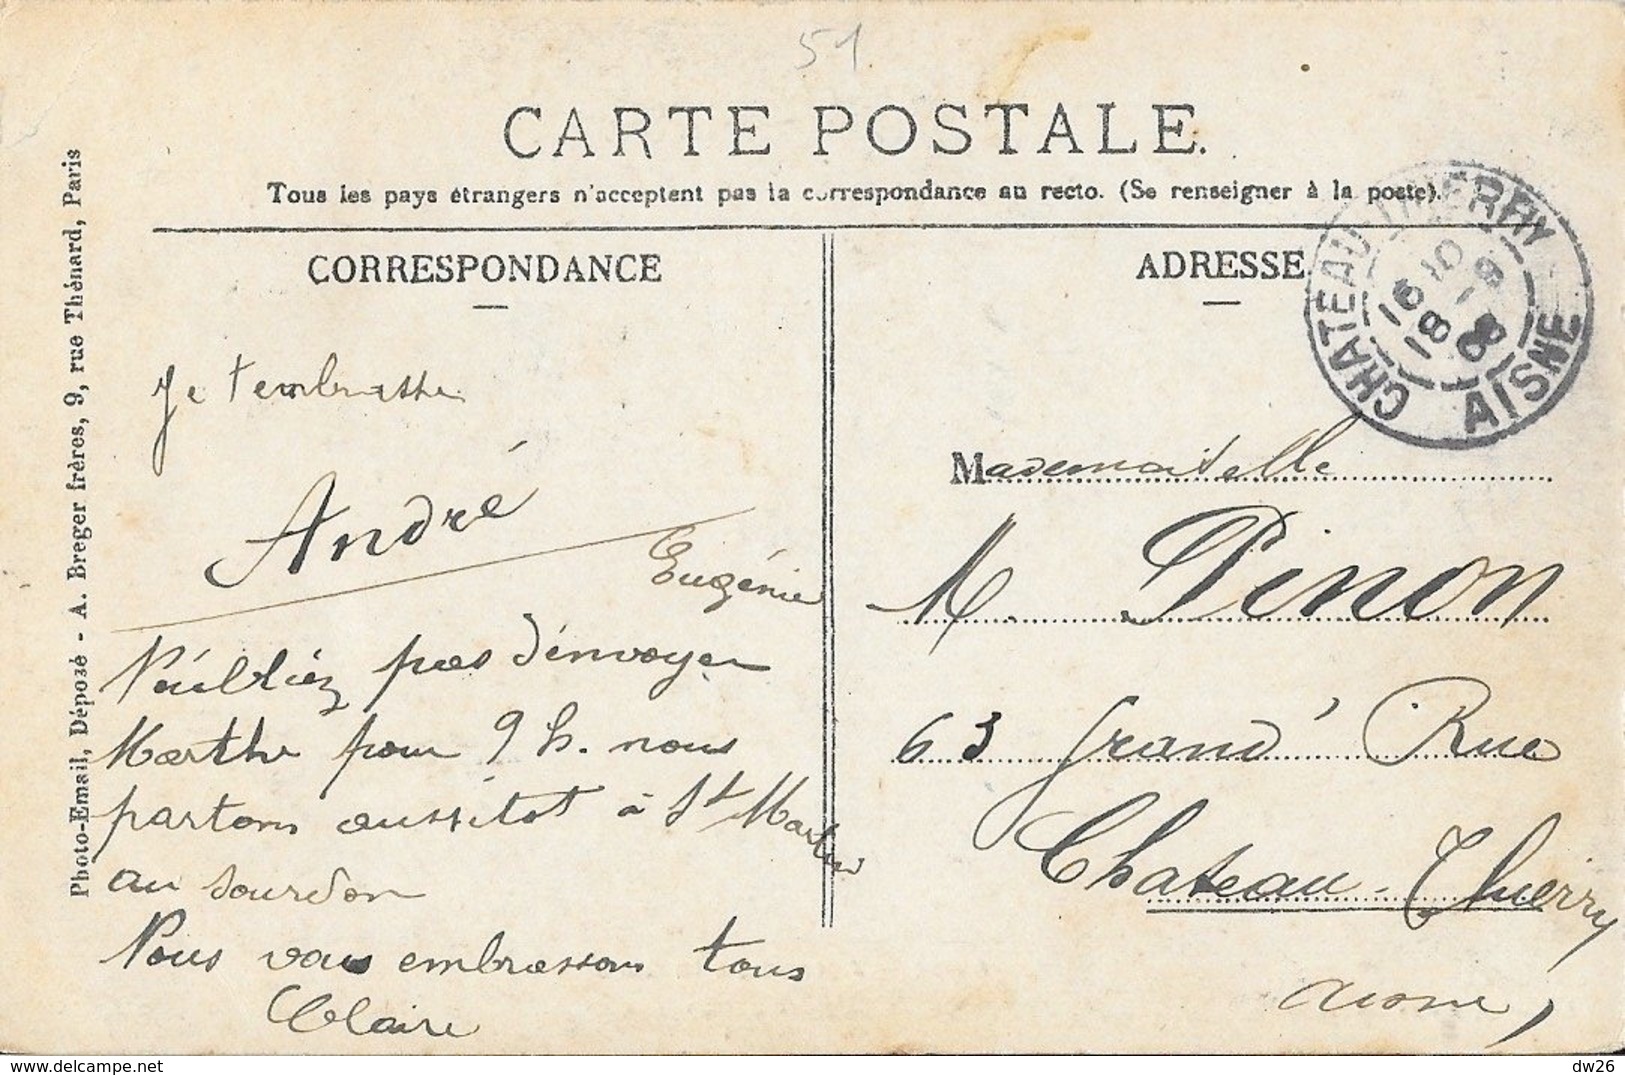 51
CARTE POSTALE.
Tous les pays étrangers n'acceptent pas la correspondance au recto. (Se renseigner à la poste).
CORRESPONDANCE
Je t'embrasse
André
Eugénie
N'oubliez pas d'énvoyer
Marthe pour 9 h. nous
partons aussitot à St Martin
au Sourdon
Nous vous embrassons tous
Claire
ADRESSE
Mademoiselle
M Pinon
63 Grand' Rue
Chateau-Thierry
Aisne
CHATEAU-THIERRY
AISNE
Photo-Email, Déposé - A. Breger frères, 9, rue Thénard, Paris
https://www.delcampe.net
dw26